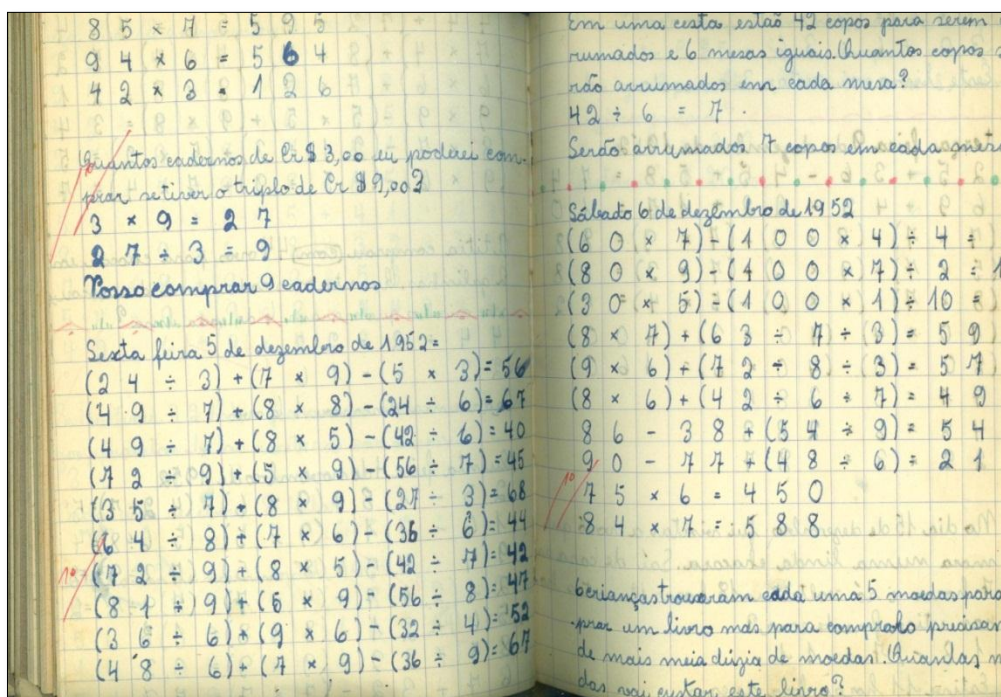 8 5 × 7 = 5 9 5
9 4 × 6 = 5 6 4
4 2 × 3 = 1 2 6
Quantos cadernos de Cr $ 3,00 eu poderei com-
prar se tiver o triplo de Cr $ 9,00?
3 × 9 = 2 7
2 7 ÷ 3 = 9
Posso comprar 9 cadernos
Sexta feira 5 de dezembro de 1952=
(2 4 ÷ 3) + (7 × 9) - (5 × 3) = 56
(4 9 ÷ 7) + (8 × 8) - (24 ÷ 6) = 67
(4 9 ÷ 7) + (8 × 5) - (42 ÷ 6) = 40
(7 2 ÷ 9) + (5 × 9) - (56 ÷ 7) = 45
(3 5 ÷ 7) + (8 × 9) - (27 ÷ 3) = 68
(6 4 ÷ 8) + (7 × 6) - (36 ÷ 6) = 44
10 (7 2 ÷ 9) + (8 × 5) - (42 ÷ 7) = 42
(8 1 ÷ 9) + (5 × 9) - (56 ÷ 8) = 47
(3 6 ÷ 6) + (9 × 6) - (32 ÷ 4) = 52
(4 8 ÷ 6) + (7 × 9) - (36 ÷ 9) = 67
Em uma cesta estão 42 copos para serem
rumados e 6 mesas iguais. Quantos copos s
rão arrumados em cada mesa?
42 ÷ 6 = 7.
Serão arrumados 7 copos em cada mesa
Sábado 6 de dezembro de 1952
(6 0 × 7) - (1 0 0 × 4) ÷ 4 =
(8 0 × 9) - (1 0 0 × 7) ÷ 2 = 1
(3 0 × 5) - (1 0 0 × 1) ÷ 10 =
(8 × 7) + (6 3 ÷ 7 ÷ 3) = 5 9
(9 × 6) + (7 2 ÷ 8 ÷ 3) = 5 7
(8 × 6) + (4 2 ÷ 6 ÷ 7) = 4 9
8 6 - 3 8 + (5 4 ÷ 9) = 5 4
9 0 - 7 7 + (4 8 ÷ 6) = 2 1
10 7 5 × 6 = 4 5 0
8 4 × 7 = 5 8 8
6 crianças trouxeram cada uma 5 moedas para
-prar um livro mas para compralo precisam
de mais meia dúzia de moedas. Quantas m
das vai custar este livro?